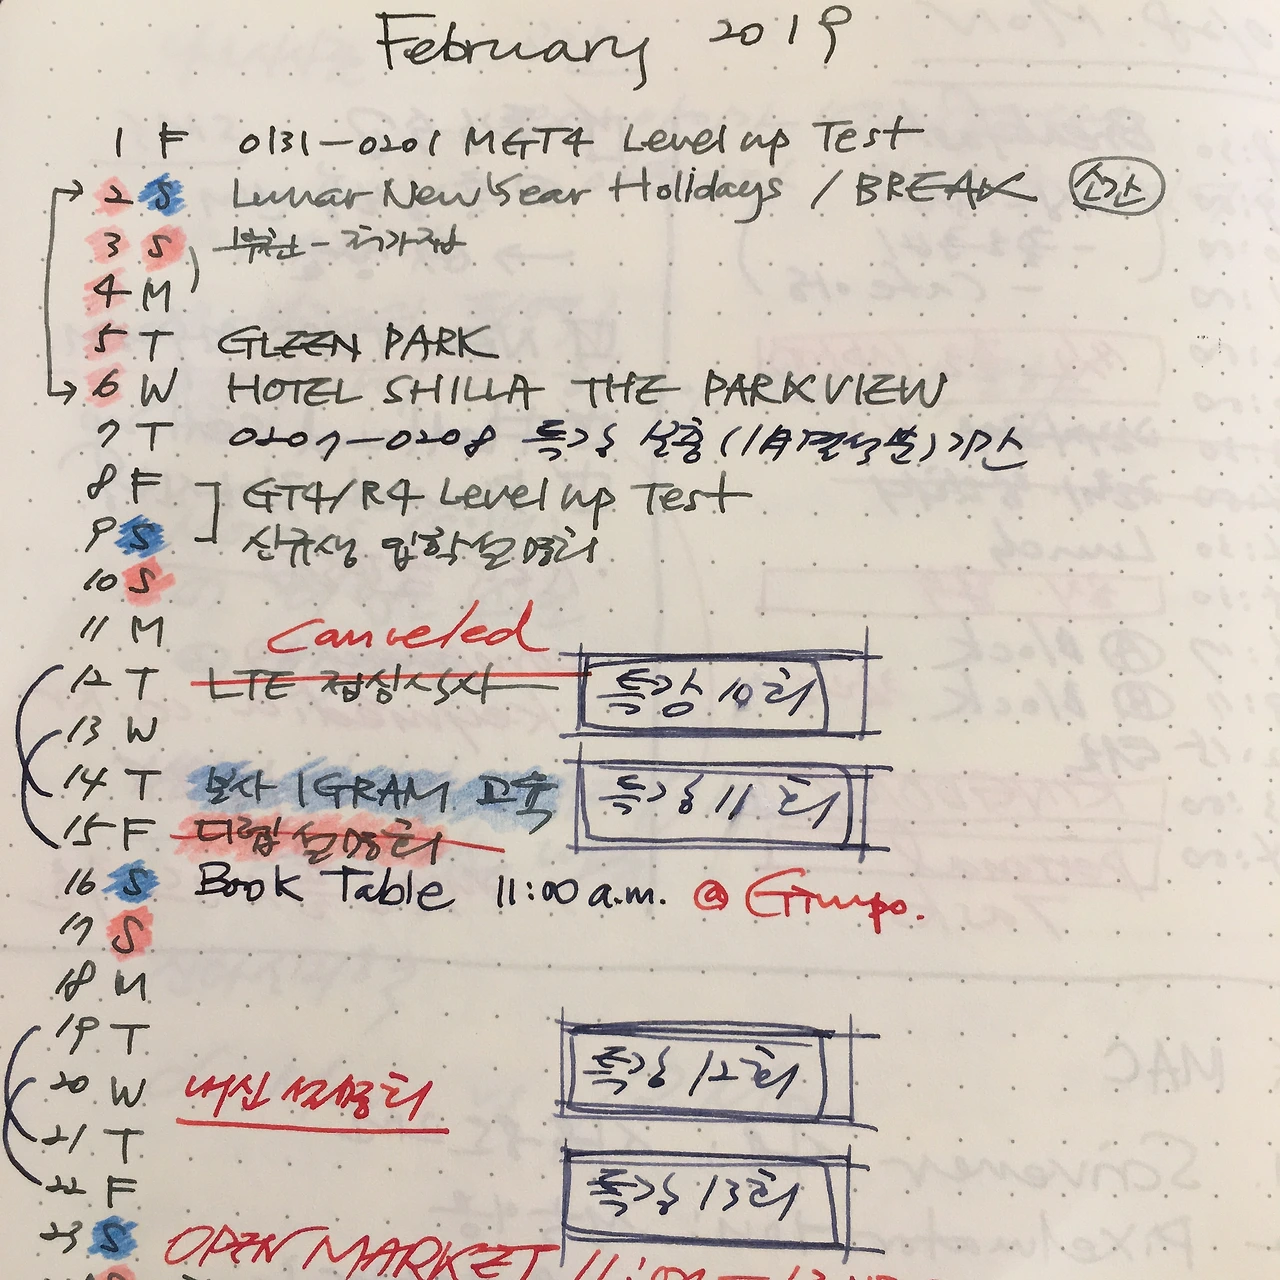 February 2019
1 F 0131-0201 MGT4 Level up Test
2 S Lunar New Year Holidays / BREAK
3 S
4 M
5 T GLEEN PARK
6 W HOTEL SHILLA THE PARKVIEW
7 T 0207-0208 특강 보충 (1月 결석분) 기간
8 F GT4/R4 Level up Test
9 S 신규생 입학설명회
10 S
11 M Canceled
12 T LTE 점심식사 특강 10회
13 W
14 T 본사 IGRAM 교육 특강 11회
15 F 디렙 설명회
16 S Book Table 11:00 a.m. @ Gimpo.
17 S
18 M
19 T 특강 12회
20 W 내신 설명회
21 T 특강 13회
22 F
23 S OPEN MARKET